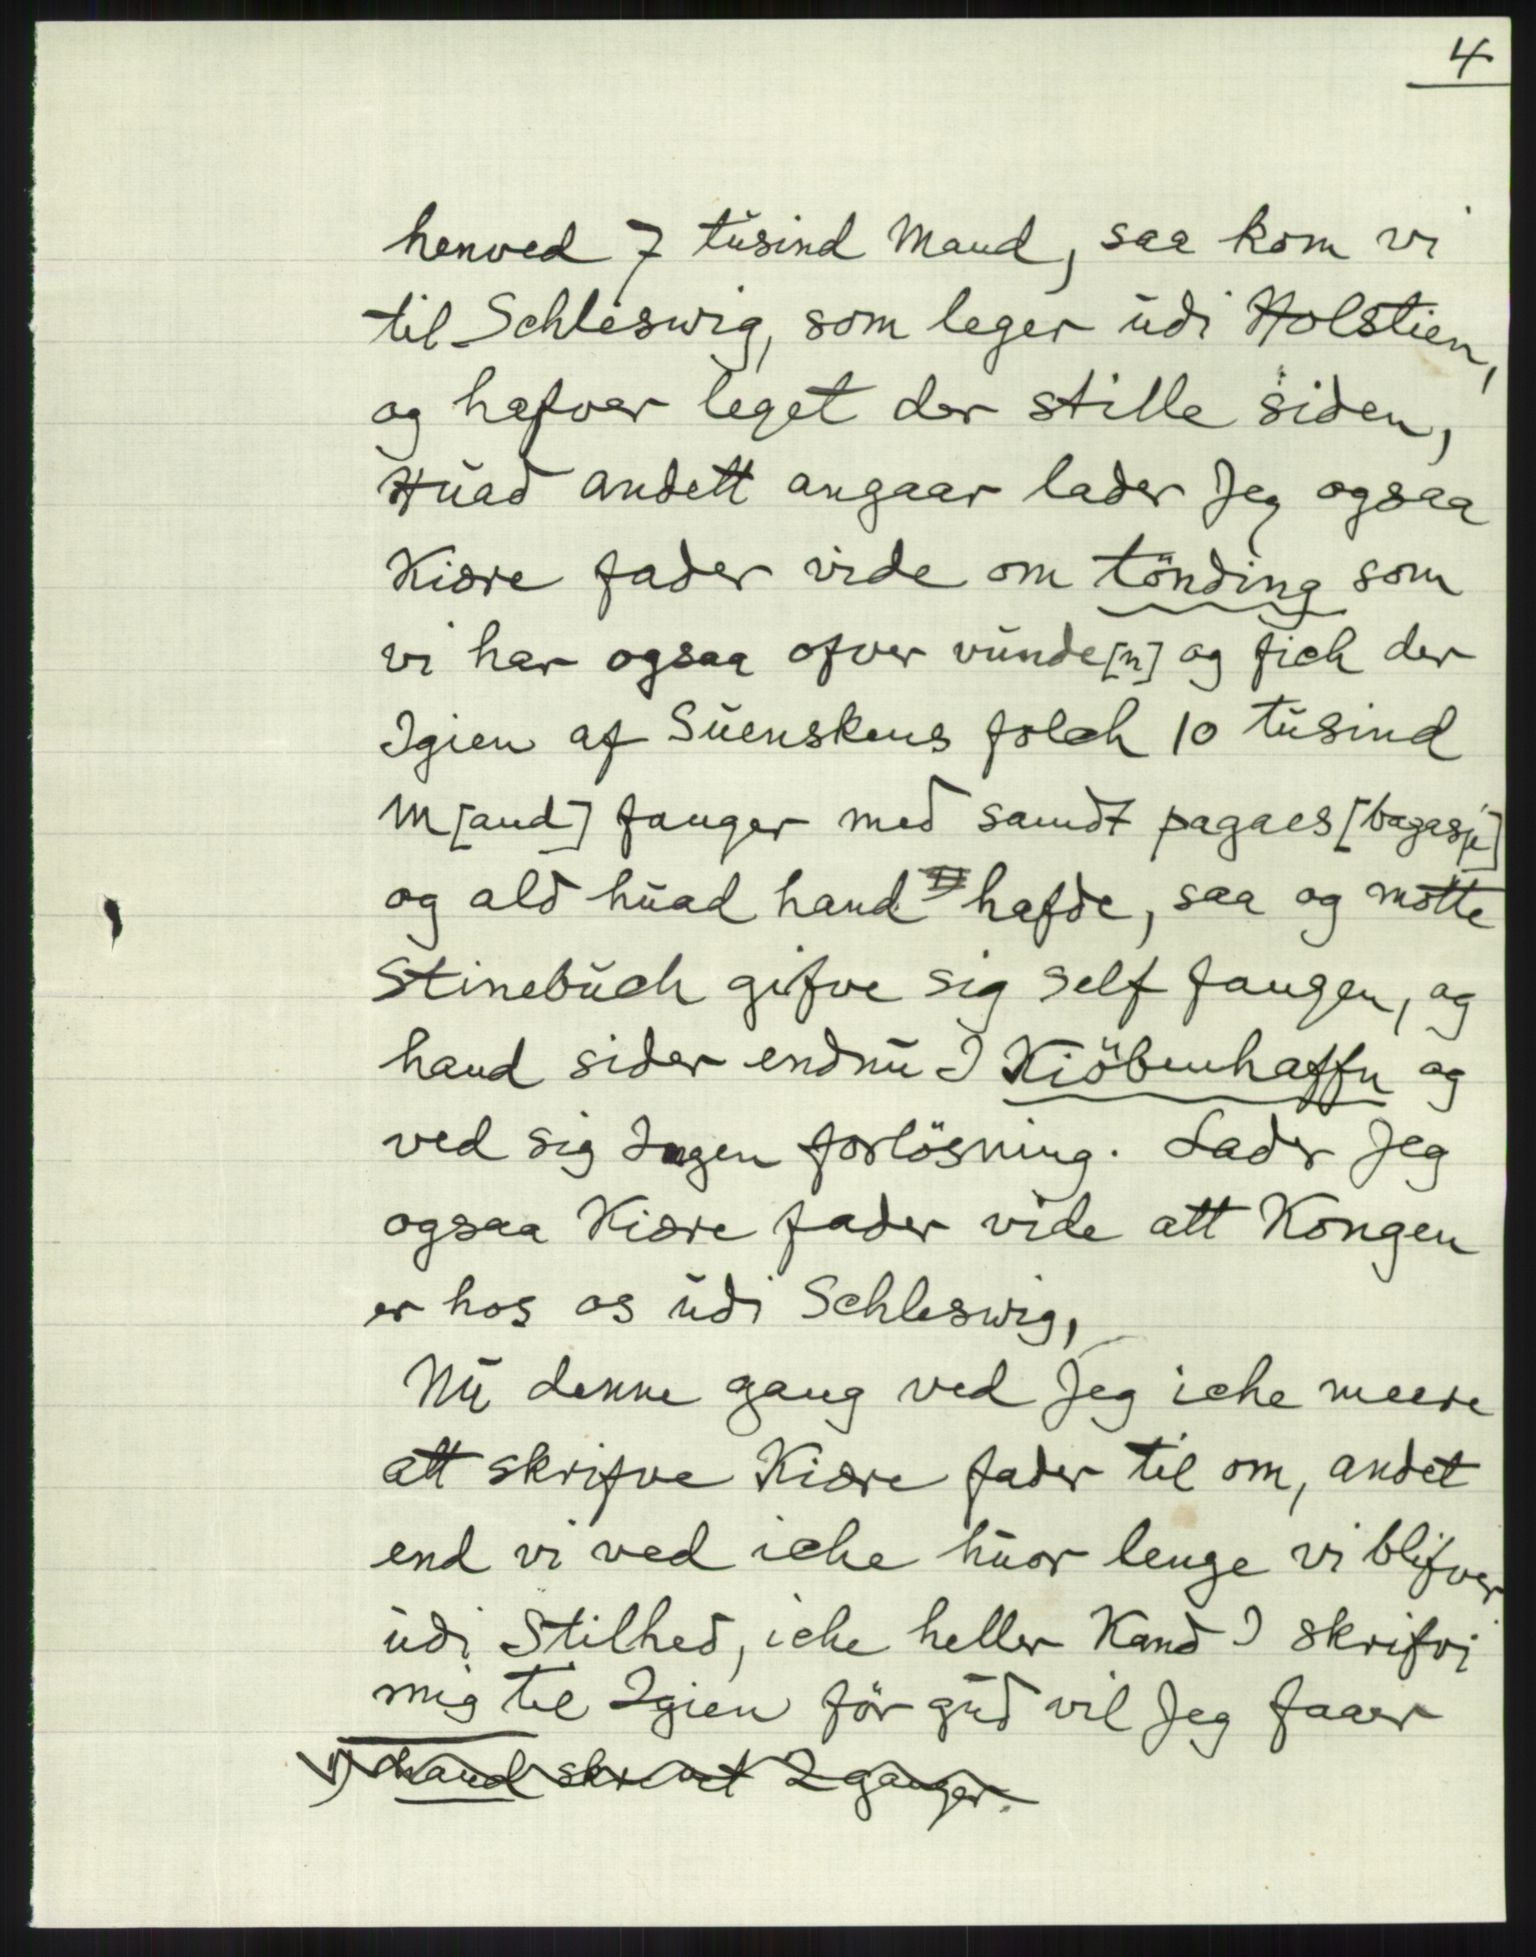 4
henved 7 tūsind Mand, saa kom vi
til Schleswig, som leger ūdi Holstien,
og hafver leget der stille siden,
Hūad andett angaar lader Jeg ogsaa
Kiære fader vide om tönding som
vi har ogsaa ofver vūnde[n] og fich der
Igien af Sūenskens folch 10 tūsind
M[and] fanger med samdt pagaes [bagasje]
og ald hūad hand hafde, saa og motte
Stinebūch gifve sig self fangen, og
hand sider endnū I Kiöbenhaffn og
ved sig Ingen forlösning. Lader Jeg
ogsaa Kiære fader vide att Kongen
er hos os ūdi Schleswig,
Nū denne gang ved Jeg iche meere
att skrifve Kiære fader til om, andet
end vi ved iche hūor lenge vi blifver
ūdi Stilhed, iche heller Kand I skrifvi
mig til Igien för gūd vil Jeg faaer
1) hand skrevet 2 ganger.